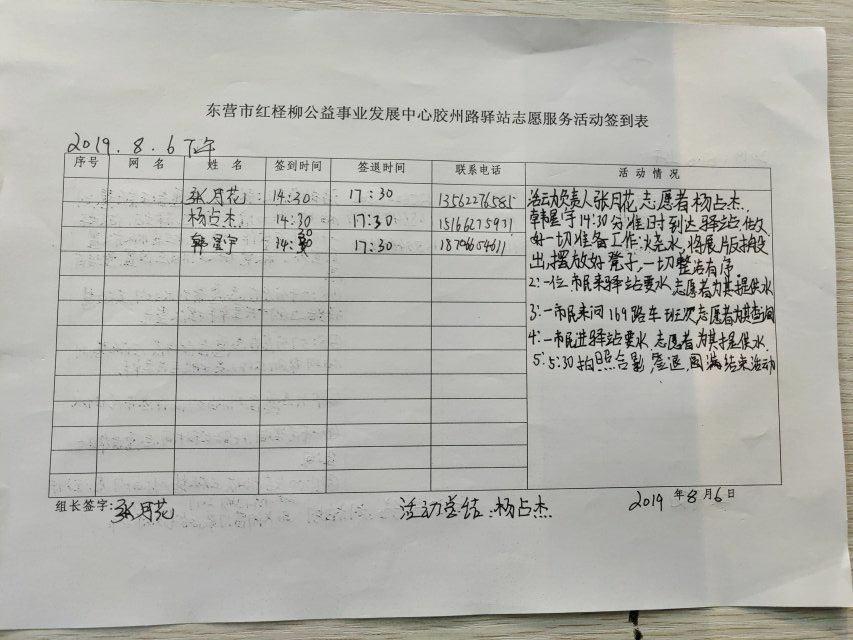 东营市红柽柳公益事业发展中心胶州路驿站志愿服务活动签到表
2019.8.6下午
序号 网名 姓名 签到时间 签退时间 联系电话 活动情况
张月花 14:30 17:30 13562276585
杨占杰 14:30 17:30
韩星宇 17:30
活动负责人张月花,志愿者杨占杰、
韩星宇14:30分准时到达驿站,做
好一切准备工作:烧水,将展版搬
出,摆放好凳子,一切整洁有序
2:一位市民来驿站要水,志愿者为其提供水
3:一市民来问169路车班次志愿者为其查询
4:一市民进驿站要水,志愿者为其提供水,
5:5:30拍照合影,签退,圆满结束活动
组长签字:张月花 活动总结:杨占杰 2019年8月6日